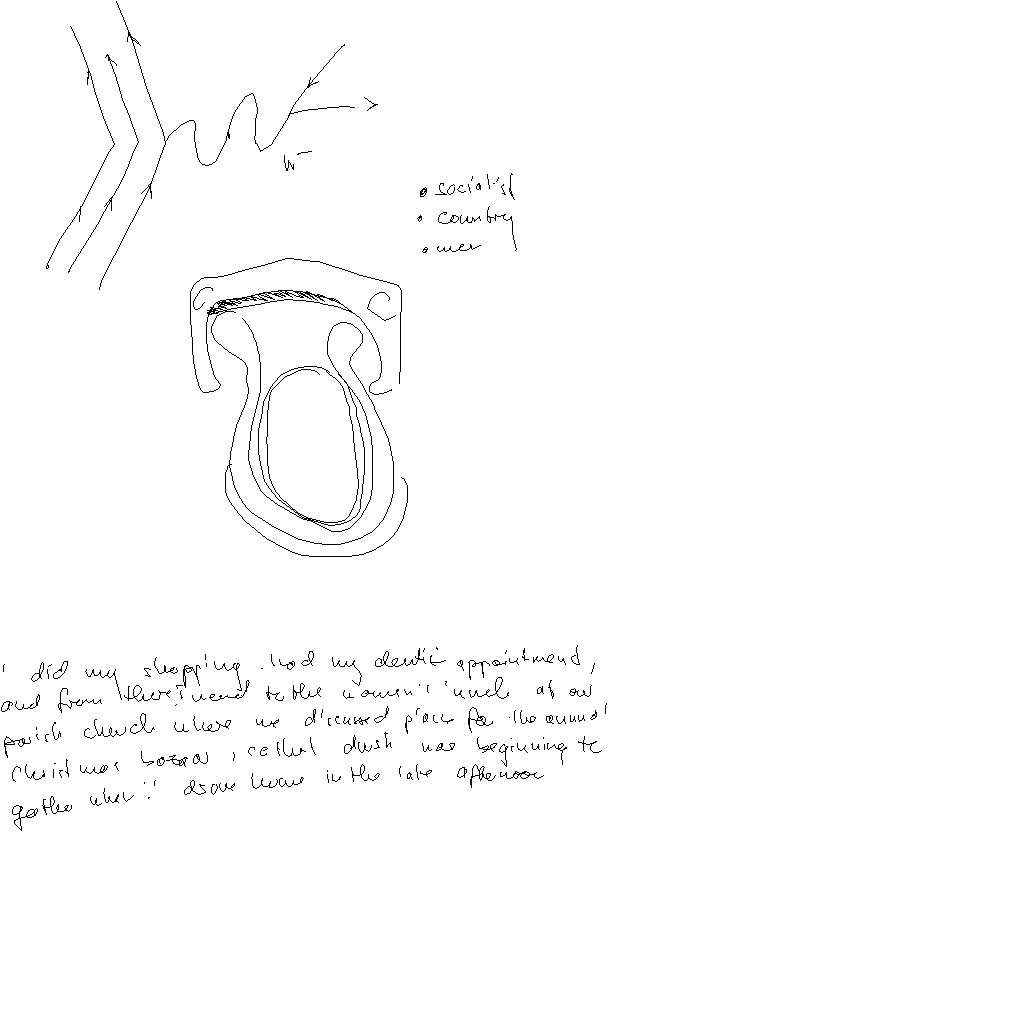 W⁻
• socialist
• country
• mer
I did my shopping. had my dentist appointment,
and from there I went to the women's circle at our
parish church where we discussed plans for the annual
Christmas bazaar, so that dusk was beginning to
gather when I drove home in the late afternoon